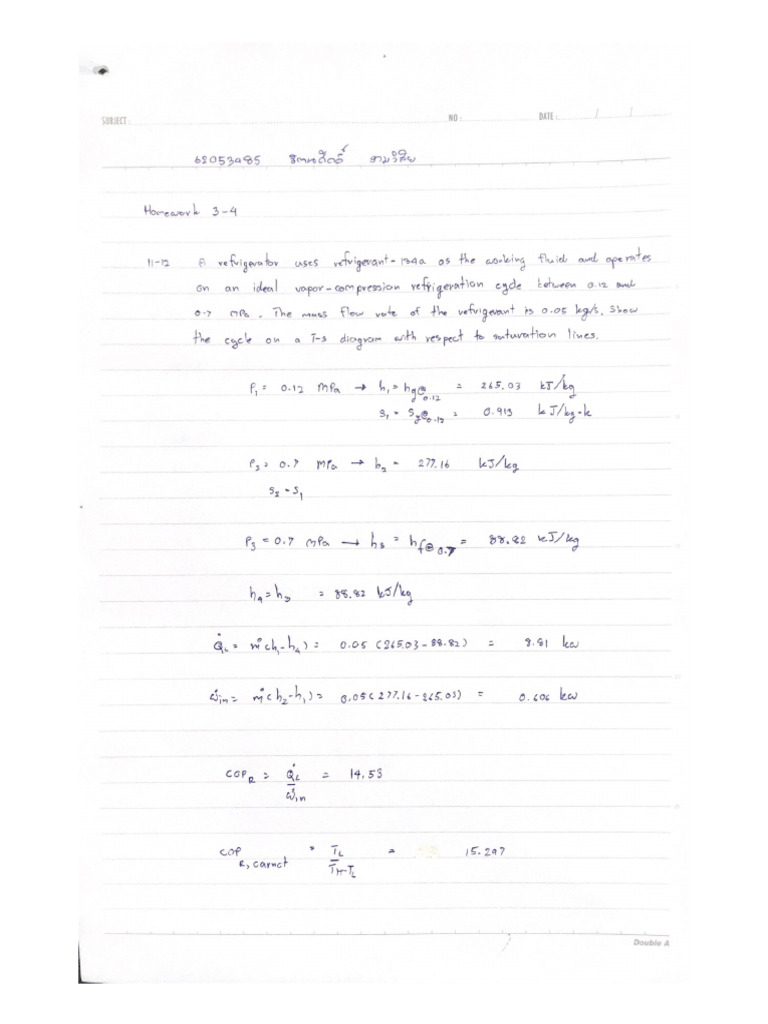 SUBJECT: NO: DATE: / /
62053985
Homework 3-4
11-12 A refrigerator uses refrigerant-134a as the working fluid and operates
on an ideal vapor-compression refrigeration cycle between 0.12 and
0.7 MPa. The mass flow rate of the refrigerant is 0.05 kg/s. Show
the cycle on a T-s diagram with respect to saturation lines.
P₁ = 0.12 MPa → h₁ = hg@0.12 = 265.03 kJ/kg
s₁ = sg@0.12 = 0.913 kJ/kg-k
P₂ = 0.7 MPa → h₂ = 277.16 kJ/kg
s₂ = s₁
P₃ = 0.7 MPa → h₃ = hf@0.7 = 88.82 kJ/kg
h₄ = h₃ = 88.82 kJ/kg
Q̇L = ṁ(h₁-h₄) = 0.05 (265.03-88.82) = 8.81 kw
ẇin = ṁ(h₂-h₁) = 0.05(277.16-265.03) = 0.606 kw
COP R = Q̇L / ẇin = 14.53
COP R, carnot = TL / TH-TL = 15.297
Double A